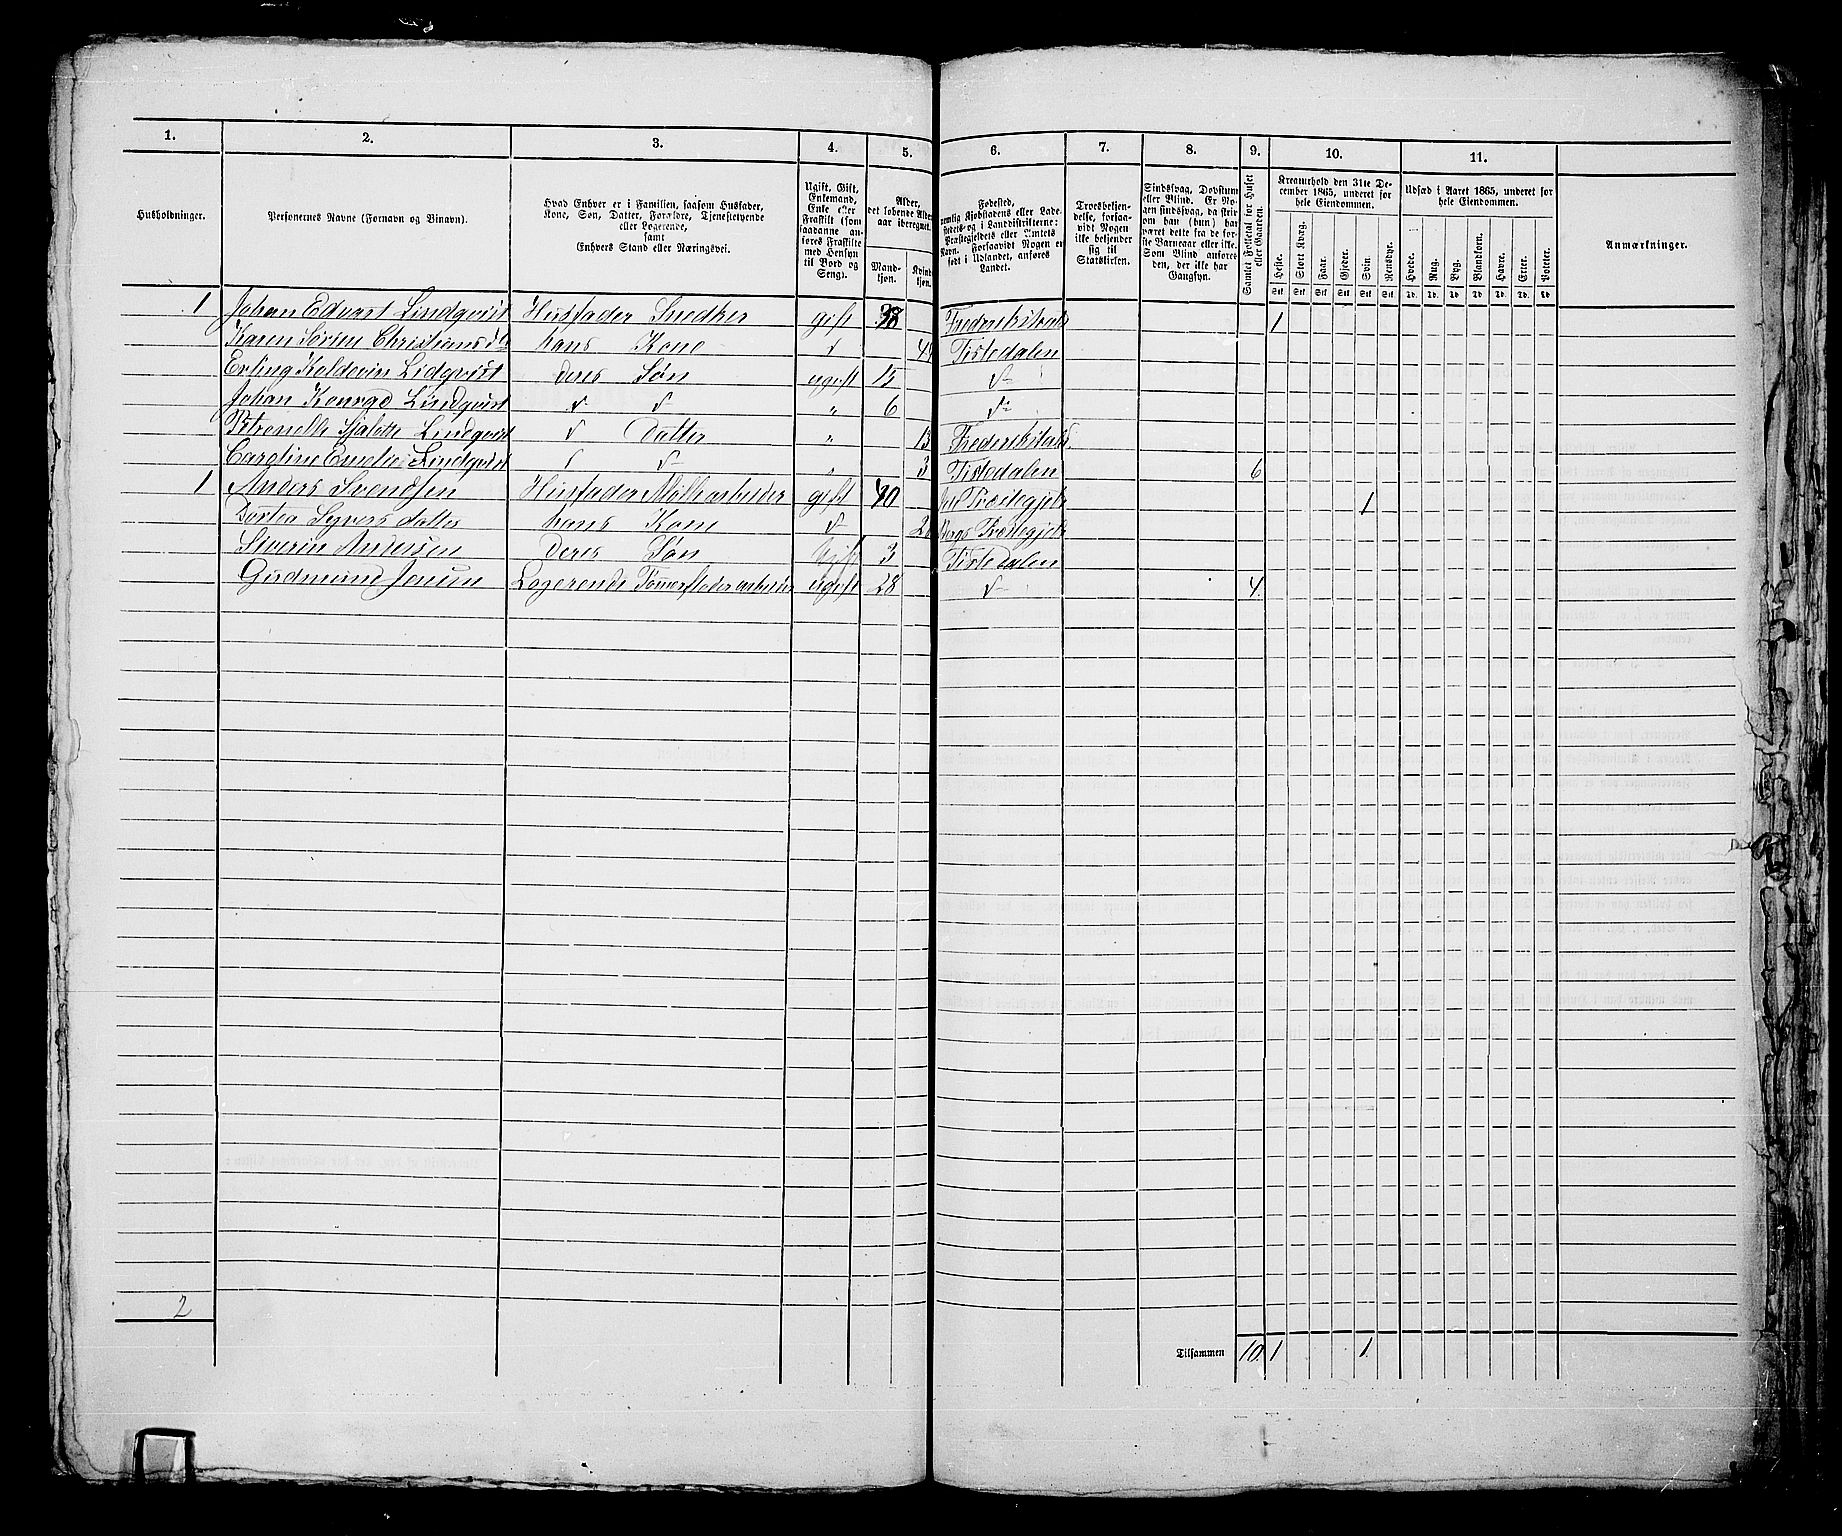 1. 2. 3. 4. 5. 6. 7. 8. 9. 10. 11.
Husholdninger.
Personernes Navne (Fornavn og Binavn).
Hvad Enhver er i Familien, saasom Husfader,
Kone, Søn, Datter, Forældre, Tjenestetyende
eller Logerende,
samt
Enhvers Stand eller Næringsvei.
Ugift, Gift,
Enkemand,
Enke eller
Fraskilt (som
saadanne an-
føres Fraskilte
med Hensyn
til Bord og
Seng).
Alder,
det løbende Alders-
aar iberegnet.
Mand-
kjøn.
Kvinde-
kjøn.
Fødested,
nemlig Kjøbstadens eller Lade-
stedets og i Landdistrikterne:
Præstegjeldets eller Amtets
Navn. Forsaavidt Nogen er
født i Udlandet, anføres
Landet.
Troesbekjen-
delse, forsaa-
vidt Nogen
ikke bekjender
sig til
Statskirken.
Sindssvag, Døvstum
eller Blind. Er No-
gen sindssvag, da skri-
om han (hun) har
været dette fra de for-
ste Barneaar eller ikke.
Som Blind anføres
den, der ikke har
Gangsyn.
Samlet Folketal for Huset
eller Gaarden.
Kreaturhold den 31te De-
cember 1865, underet for
hele Eiendommen.
Heste. Stort Kvæg. Faar. Gjeder. Svin. Rensdyr.
Stk Stk Stk Stk Stk Stk
Udsæd i Aaret 1865, underet for
hele Eiendommen.
Hvede. Rug. Byg. Blandkorn. Havre. Erter. Poteter.
Td. Td. Td Td Td. Td. Td
Anmærkninger.
1 Johan Edvart Lindqvist Husfader Snedker gift 38 Frederikshald 1
Karen Sørine Christiansd hans Kone 4 Tistedalen
Erling Koldevin Lidqvist deres Søn ugift 15
Johan Konrad Lindqvist " 6
Petronelle Sjalotte Lindqvist Datter " 13 Frederikshald
Caroline Emelie Lindqvist 3 Tistedalen 6
1 Anders Svendsen Husfader Møllearbeider gift 30 Præstegjeld 1
Dortea Syversdatter hans Kone Bergs Præstegjeld
Severin Andersen deres Søn Ugift 3 Tistedalen
Gudmund Jensen Logerende ugift 28 4
2
Tilsammen 10 1 1